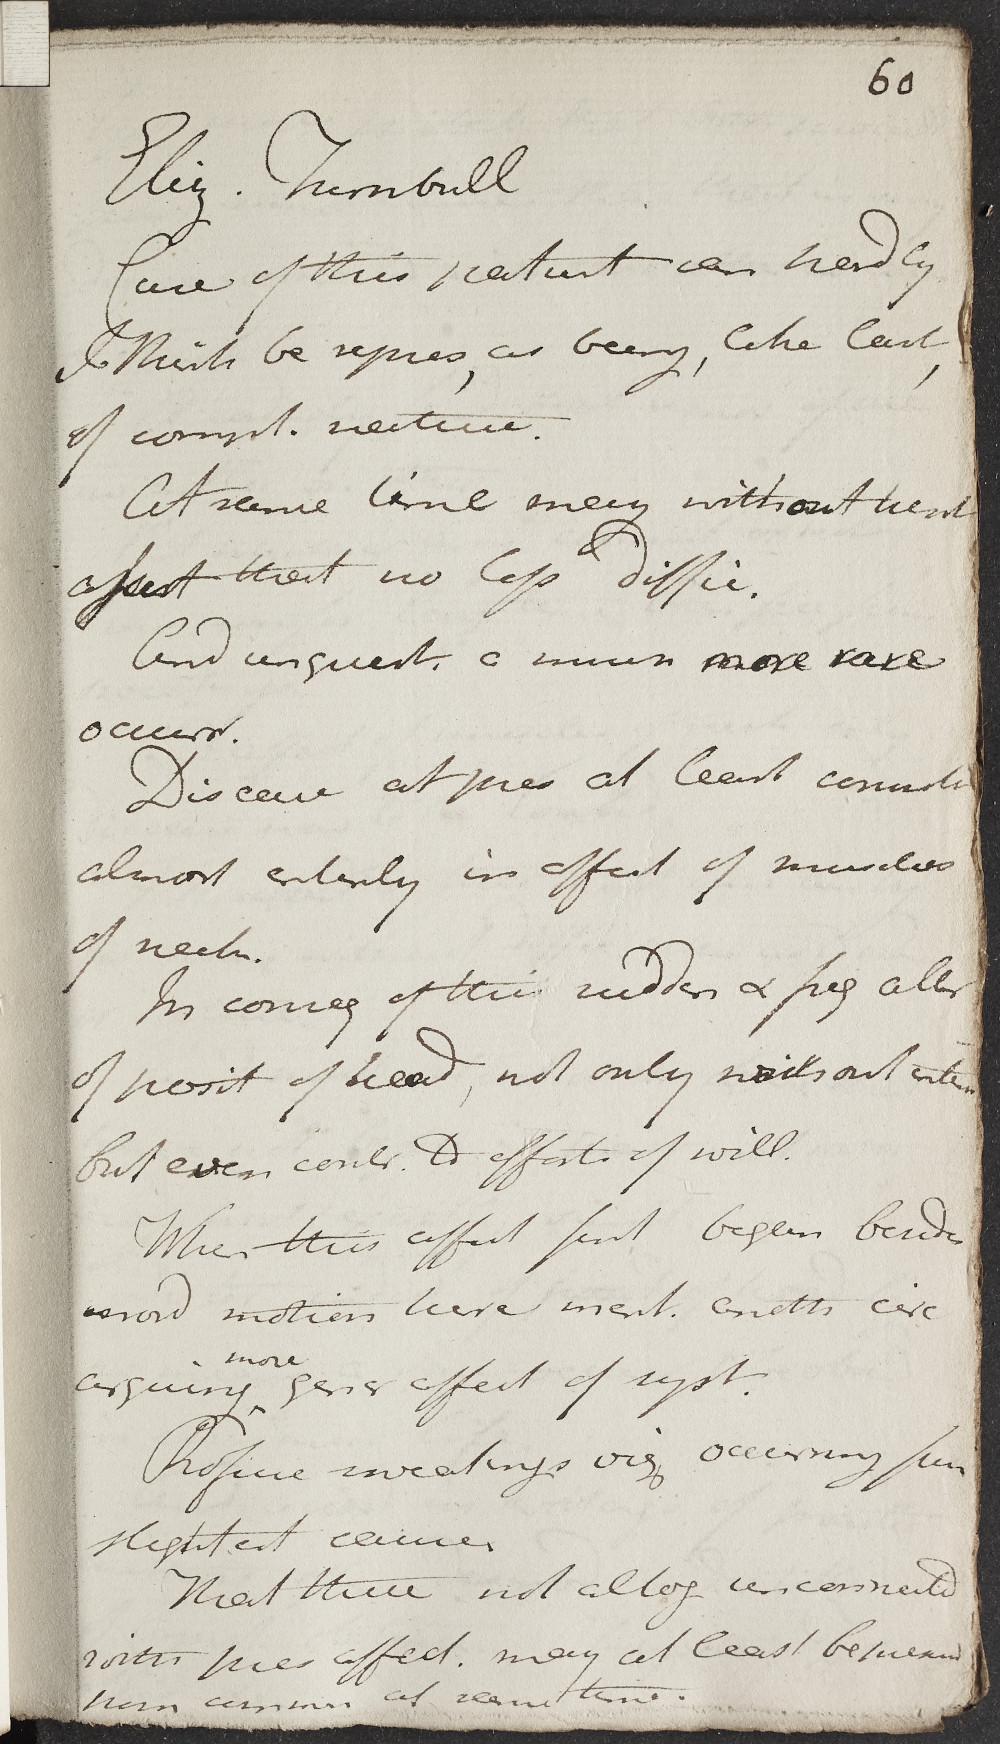 60
Eliz. Turnbull
Case of this patient can hardly
I think be repres, as being, like last,
of compl. nature.
At same time may without hesit
assert that no less a diffic.
And unquest. a much more rare
occurr.
Disease at pres at least consists
almost entirely in affect of muscles
of neck.
In conseq of this sudden & freq alter
of posit of head, not only without inten
but even contr. to efforts of will.
When this affect first began besides
inord motions have ment. anoth circ
arguing more gener affect of syst.
Profuse sweatings viz occurring from
slightest causes
That these not altog unconnected
with pres affect. may at least be presum
from commen at same time.